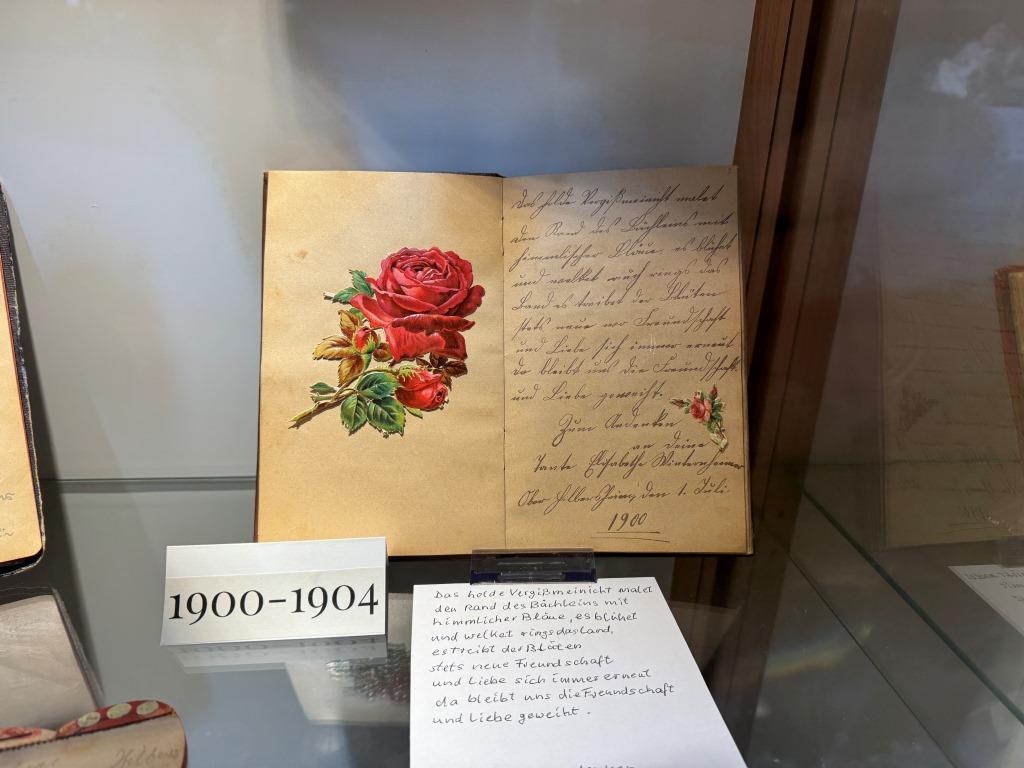 Das holde Vergißmeinicht malet
den Rand des Bächleins mit
himmlischer Bläue, es blühet
und welket auch rings das
Land es treibet der Blüten
stets neue wo Freundschaft
und Liebe sich immer erneut
da bleibt uns die Freundschaft
und Liebe geweiht.
Zum Andenken
an deine
Tante Elisabethe Winternheimer
Ober Hilbersheim, den 1. Juli
1900
1900–1904
Das holde Vergißmeinicht malet
den Rand des Bächleins mit
himmlicher Bläue, es blühet
und welket rings das Land,
es treibt der Blüten
stets neue Freundschaft
und Liebe sich immer erneut
da bleibt uns die Freundschaft
und Liebe geweiht.